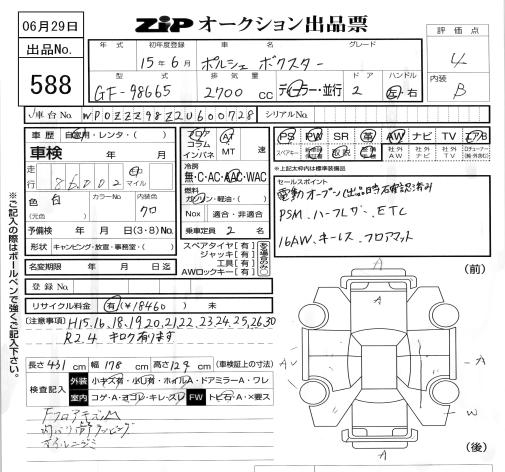 06月29日
ZIP オークション出品票
出品No.
588
評価点
4
内装
B
年式 初年度登録 車名 グレード
15年6月 ポルシェ ボクスター
型式 排気量 ドア ハンドル
GF-98665 2700 cc ディーラー・並行 2 左 右
車台No. WP0ZZZ98Z2U600728 シリアルNo.
車歴 自家用・レンタ・( )
車検 年 月
走行 186002 km マイル
色 白 カラーNo. 内装色 クロ
(元色)
予備検 年 月 日 (3・8) No.
形状 キャンピング・放宣・事務室・( )
名変期限 年 月 日迄
登録No.
リサイクル料金 有(¥18460) 未
フロア コラム インパネ
AT MT 速
冷房
無・C・AC・AAC・WAC
燃料
ガソリン・軽油・( )
Nox 適合・非適合
乗車定員 2 名
スペアタイヤ[有]
ジャッキ[有]
工具[有]
AWロックキー[有]
ある場合のみ
PS PW SR 革 AW ナビ TV エアB
スペアキー 取扱 社外AW 社外ナビ 社外TV
*上記太枠内は標準装備品
セールスポイント
電動オープン(出品時不確認済み
PSM、ハーフレザ、ETC
16AW、キーレス、フロアマット
(注意事項)
H15.16.18.19.20.21.22.23.24.25.26.30
R2.4 キロク有ります
長さ 431 cm 幅 178 cm 高さ 129 cm (車検証上の寸法)
検査記入
外装 小キズ有・小凹有・ホイルA・ドアミラーA・ワレ
室内 コゲ・A・ヨゴレ・キレ・スレ FW トビ石・A・×要ス
フロアキズ
(前)
A
A
A
A
W
(後)
※ご記入の際はボールペンで強くご記入下さい。